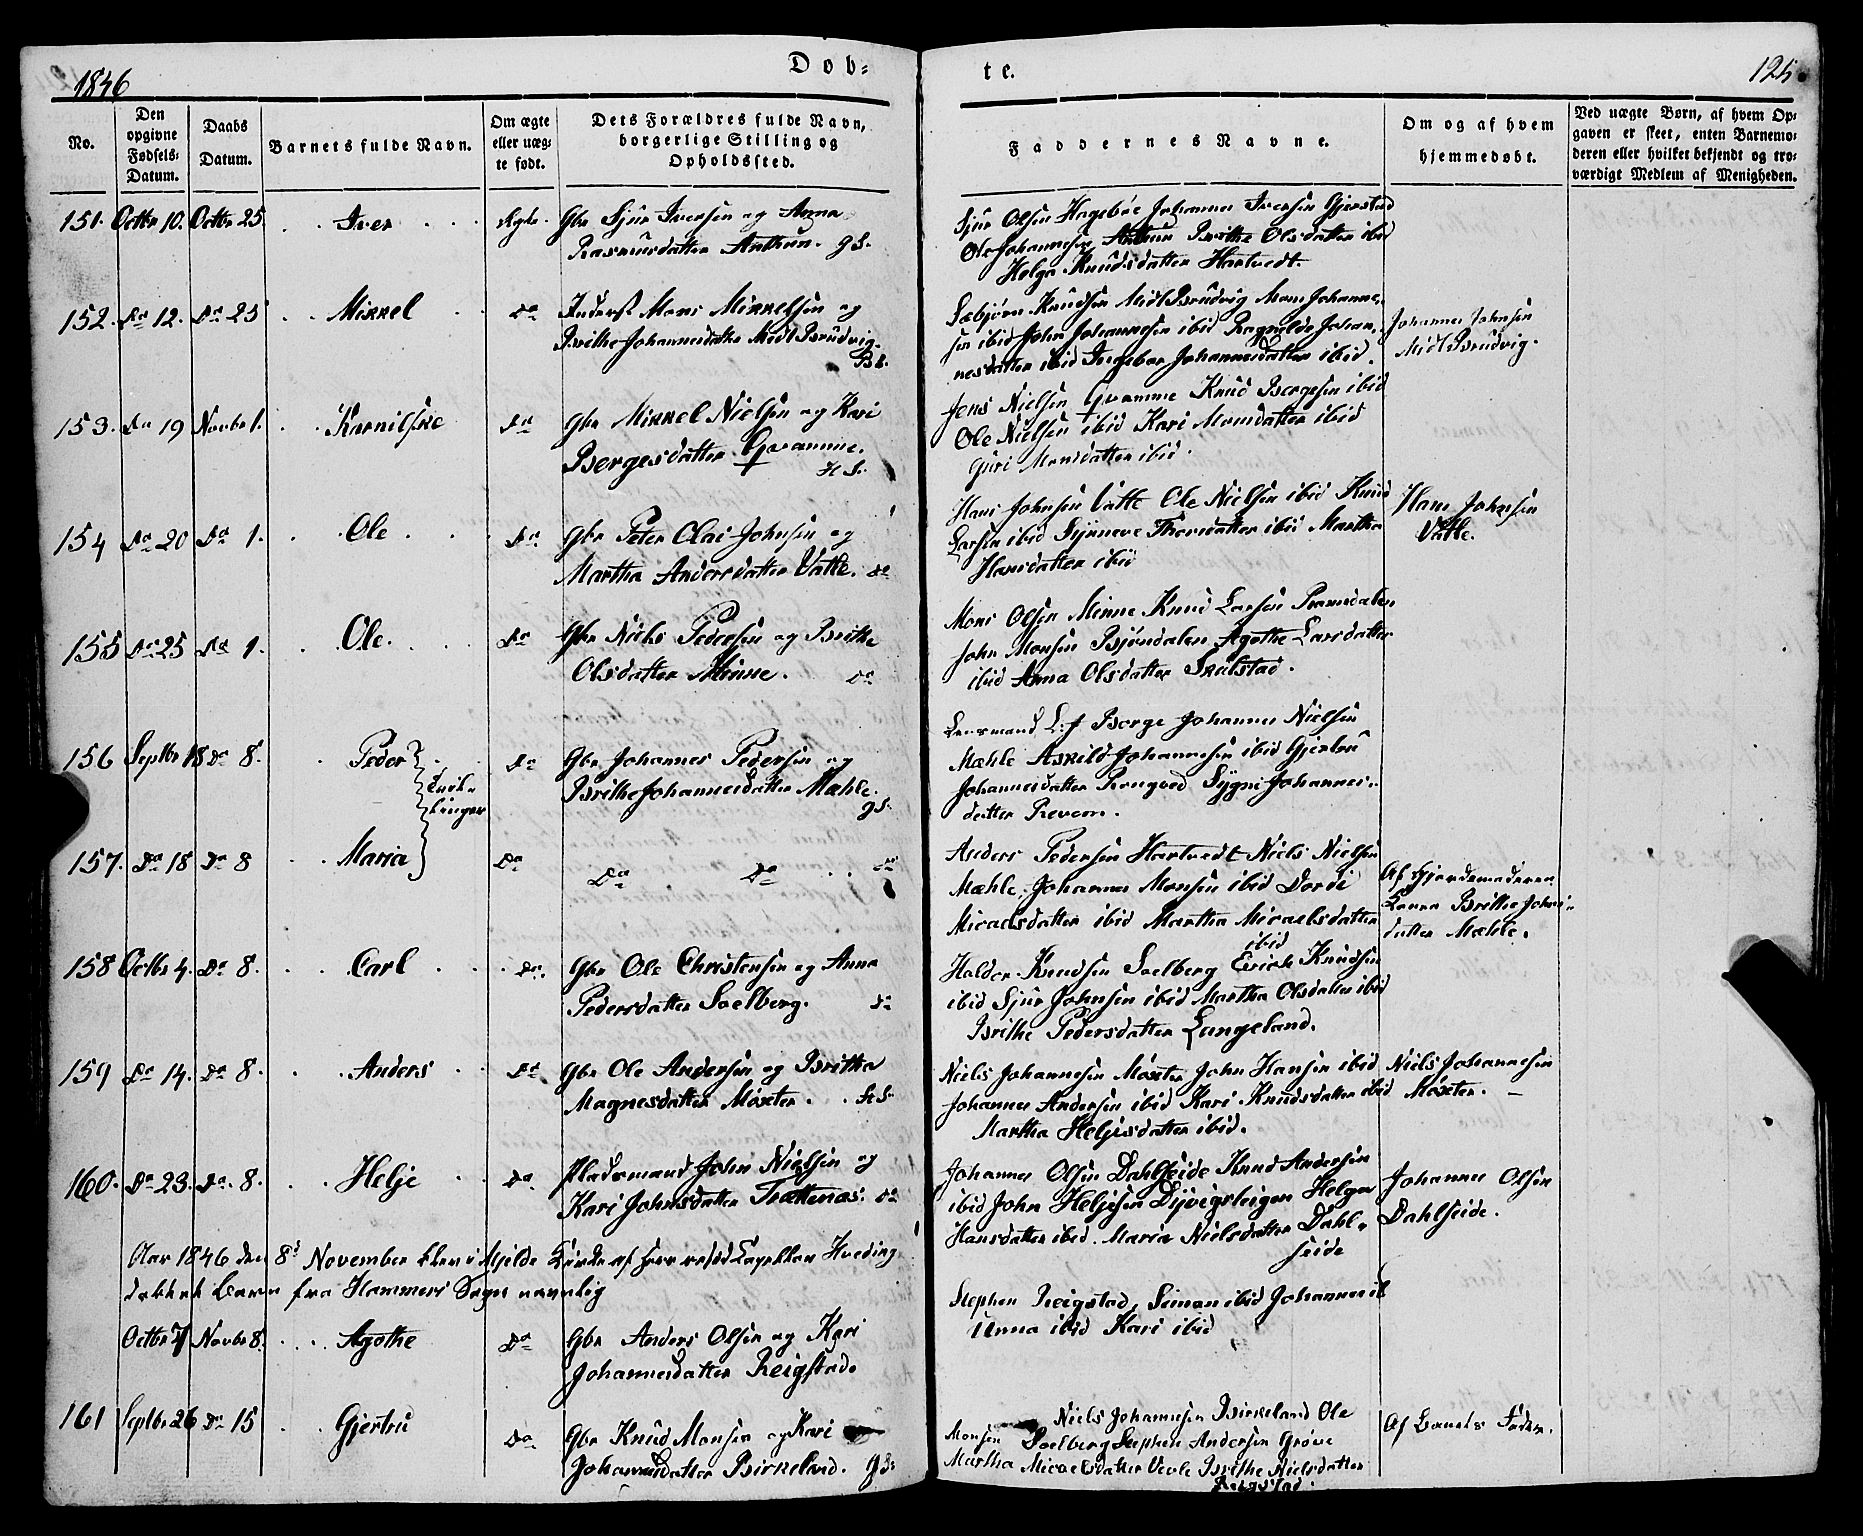 1846
Døb-
te.
125
No.
Den opgivne Fødsels-Datum.
Daabs Datum.
Barnets fulde Navn.
Om ægte eller uægte født.
Dets Forældres fulde Navn, borgerlige Stilling og Opholdssted.
Faddernes Navne.
Om og af hvem hjemmedøbt.
Ved uægte Børn, af hvem Op-
gaven er skeet, enten Barnemo-
deren eller hvilket bekjendt og tro-
værdigt Medlem af Menigheden.
151. Octbr 10. Octbr 25. Iver Ægte. Gbr Sjur Iversen og Anna
Rasmusdatter Anthun. g S.
Sjur Olsen Hagebøe Johannes Iversen Gjerstad
Ole Johannesen Anthun Brithe Olsdatter ibid
Helga Knudsdatter Hartvedt.
152. Do 12. Do 25 Mikkel Do Inderst Mons Mikkelsen og
Brithe Johannesdatter Midt Brudvig.
B S.
Sebjørn Knudsen Midt Brudvig Mons Johanne-
sen ibid John Johannesen ibid Ragnilde Johan-
nesdatter ibid Ingebor Johannesdatter ibid.
Johannes Johnsen
Midt Brudvig.
153. Do 19 Novbr 1. Karnilske Do Gbr Mikkel Nielsen og Kari
Børgesdatter Gvamme.
H S.
Jens Nielsen Gvamme Knud Børgesen ibid
Ole Nielsen ibid Kari Monsdatter ibid
Guri Monsdatter ibid.
154 Do 20 Do 1. Ole Do Gbr Peter Olai Johnsen og
Martha Andersdatter Vatle. Do
Hans Johnsen Vatle Ole Nielsen ibid Knud
Larsen ibid Synneve Iversdatter ibid Martha
Hansdatter ibid
Hans Johnsen
Vatle.
155 Do 25 Do 1. Ole. Do Gbr Niels Pedersen og Brithe
Olsdatter Minne. Do
Mons Olsen Minne Knud Larsen Ramsdalen
John Monsen Bjøndalen Agothe Larsdatter
ibid Anna Olsdatter Skulstad.
156 Septbr 18 Do 8. Peder Do Gbr Johannes Pedersen og
Tvil-
linger
Brithe Johannesdatter Mæhle.
g S.
Lensmand L:f Børge Johannes Nielsen
Mæhle Askild Johannesen ibid Gjertru
Johannesdatter Rongved Sygni Johannes-
datter Revem.
157. Do 18 Do 8 Maria Do Do Do Do
Anders Pedersen Hartvedt Niels Nielsen
Mæhle Johannes Monsen ibid Dordi
Micaelsdatter ibid Martha Micaelsdatter
ibid
Af Gjordemoderen
Brithe Johans-
datter Mæhle.
158 Octbr 4. Do 8. Carl Do. Gbr Ole Christensen og Anna
Pedersdatter Soelberg. Do
Haldor Knudsen Soelberg Erich Knudsen
ibid Sjur Johnsen ibid Martha Olsdatter ibid
Brithe Pedersdatter Langeland.
159 Do 14. Do 8. Anders Do Gbr Ole Andersen og Britha
Magnesdatter Moxter. H S.
Niels Johannesen Moxter John Hansen ibid
Johannes Andersen ibid Kari Knudsdatter ibid
Martha Heljesdatter ibid.
Niels Johannesen
Moxter.
160. Do 23. Do. 8. Helje Do Pladsmand John Nielsen og
Kari Johnsdatter Trættenæs. Do
Johannes Olsen Dahlseide Knud Andersen
ibid John Heljesen Dyvigsteigen Helga
Hansdatter ibid. Maria Nielsdatter Dahl-
seide
Johannes Olsen
Dahlseide.
Aar 1846 den 8d November blev i Mjelde Kirke af Herr resid Capellan Hveding
døbt et Barn fra Hammers Sogn nemlig
Octbr 7 Novbr 8. Agothe Do Gbr Anders Olsen og Kari
Johannesdatter Reigstad.
Stephen Reigstad, Simon ibid Johannes ib
Anna ibid Kari ibid
161 Septbr 26 Do 15 Gjertru Do Gbr Knud Monsen og Kari
Johannesdatter Birkeland. g S.
Niels Johannesen Birkeland Ole
Monsen Soelberg Stephen Andersen Grøve
Martha Micaelsdatter Vevle Brithe Nielsdatter
Reigstad.
Af Barnets Fader.